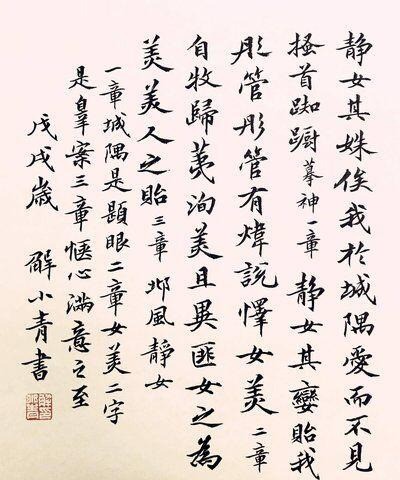 静女其姝俟我於城隅愛而不見
搔首踟躕摹神一章静女其孌貽我
彤管彤管有煒說懌女美二章
自牧歸荑洵美且異匪女之為
美美人之貽三章邶風静女
一章城隅是題眼二章女美二字
是案三章愜心滿意之至
戊戌歲解小青書